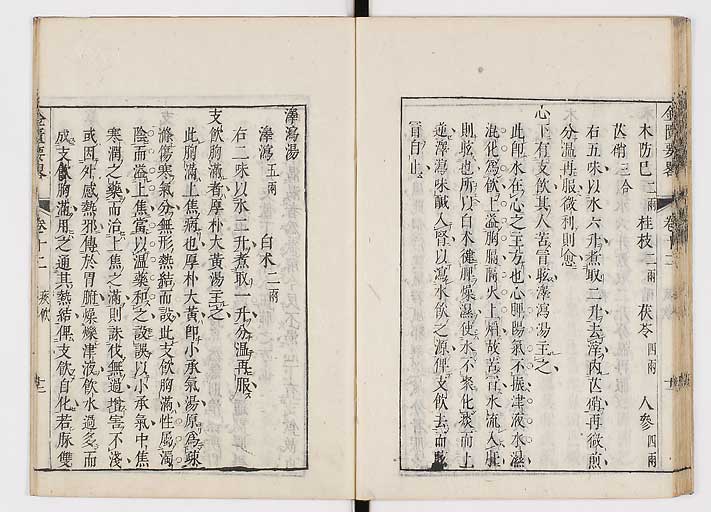 金匱要畧 卷十二
木防己二兩 桂枝二兩 茯苓四兩 人參四兩
芒硝三合
右五味以水六升煮取二升去滓内芒硝再微煎
分温再服微利則愈
心下有支飲其人苦冒眩澤瀉湯主之
此即水在心之主方也心脾陽氣不振津液水濕
混化爲飲上溢胸膈 火上 故苦冒水流入
則眩也所以白朮健脾燥濕使水不聚化痰而上
逆澤瀉味鹹入腎以瀉水飲之源俾支飲去而眩
冒自止
澤瀉湯
澤瀉五兩 白朮二兩
右二味以水二升煮取一升分温再服
支飲胸滿者厚朴大黄湯主之
此胸滿上焦病也厚朴大黄即小承氣湯原爲疎
滌傷寒氣分無形熱結而設此支飲胸滿性屬濁
陰而溢上焦當以温藥和之設誤以小承氣中焦
寒瀉之藥而治上焦之滿則誅伐無過 害不淺
或因外感熱邪傳於胃腑燥爍津液飲水過多而
成支飲胸滿用之通其熱結俾支飲自化若脈雙
金匱要畧 卷十二 痰飲 十二